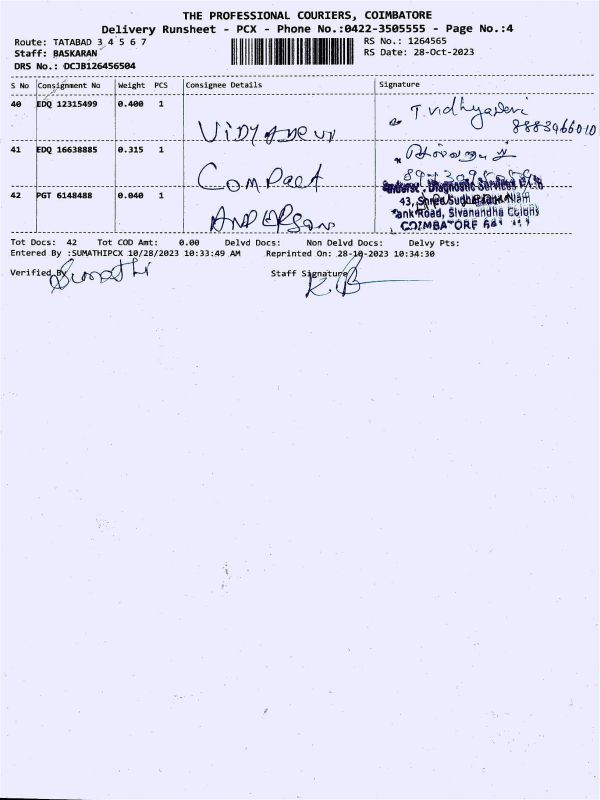 THE PROFESSIONAL COURIERS, COIMBATORE
Delivery Runsheet - PCX - Phone No.:0422-3505555 - Page No.:4
Route: TATABAD 3 4 5 6 7
RS No.: 1264565
Staff: BASKARAN
RS Date: 28-Oct-2023
DRS No.: OCJB126456504
S No Consignment No Weight PCS Consignee Details Signature
40 EDQ 12315499 0.400 1
T. vidhyadevi
8883966010
41 EDQ 16638885 0.315 1
Compact
42 PGT 6148488 0.040 1
Anderson
Diagnostic Services
43,
Tank Road, Sivanandha Colony
COIMBATORE
Tot Docs: 42 Tot COD Amt: 0.00 Delvd Docs: Non Delvd Docs: Delvy Pts:
Entered By :SUMATHIPCX 10/28/2023 10:33:49 AM Reprinted On: 28-10-2023 10:34:30
Verified By Sumathi Staff Signature